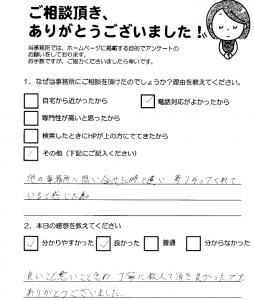 ご相談頂き、
ありがとうございました!
当事務所では、ホームページに掲載する目的でアンケートの
お願いをしております。
お手数ですが、ご協力くださいましたら幸いです。
1、なぜ当事務所にご相談を頂けたのでしょうか?理由を教えてください。
自宅から近かったから ✓ 電話対応がよかったから
専門性が高いと思ったから
検索したときにHPが上の方にでてきたから
✓ その他(下記にご記入ください)
他の事務所へ問い合せた時と違い 寄りそってくれて
いると感じた為
2、本日の感想を教えてください
✓ 分かりやすかった ✓ 良かった 普通 分からなかった
良いこと悪いこと含め、丁寧に教えて頂き良かったです。
ありがとうございました。